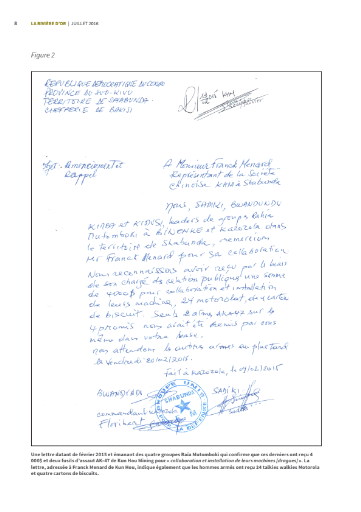 8 LA RIVIÈRE D'OR | JUILLET 2016
Figure 2
REPUBLIQUE DEMOCRATIQUE DU CONGO
PROVINCE DU SUD-KIVU
TERRITOIRE DE SHABUNDA
CHEFFERIE DE BAKISI
A Monsieur Franck Menard
Rappel
Représentant de la Société
chinoise KHM à Shabunda
Nous, SAMIKI, BWANDUNDU
KIMBA et KIDUSI, leaders de groupes Rahia
Mutomboki à BILONKO et Kazozola dans
le territoire de Shabunda, remercions
Mr Franck Menard pour sa collaboration
Nous reconnaissons avoir reçu par le biais
de son chargé de relation publique une somme
de 4000$ pour collaboration et installation
de leurs machine, 24 motorolat, et 4 carton
de biscuit. Seuls 2 armes AK47 sur le
4 promis nous avait été remis par vous
même dans votre base.
nous attendons le autres armes au plus tard
le vendredi 20/02/2015.
fait à Kazozola, le
SAMIKI
SHABUNDA
Floribert
Une lettre datant de février 2015 et émanant des quatre groupes Raïa Mutomboki qui confirme que ces derniers ont reçu 4
000$ et deux fusils d'assaut AK-47 de Kun Hou Mining pour « collaboration et installation de leurs machines [dragues] ». La
lettre, adressée à Franck Menard de Kun Hou, indique également que les hommes armés ont reçu 24 talkies walkies Motorola
et quatre cartons de biscuits.